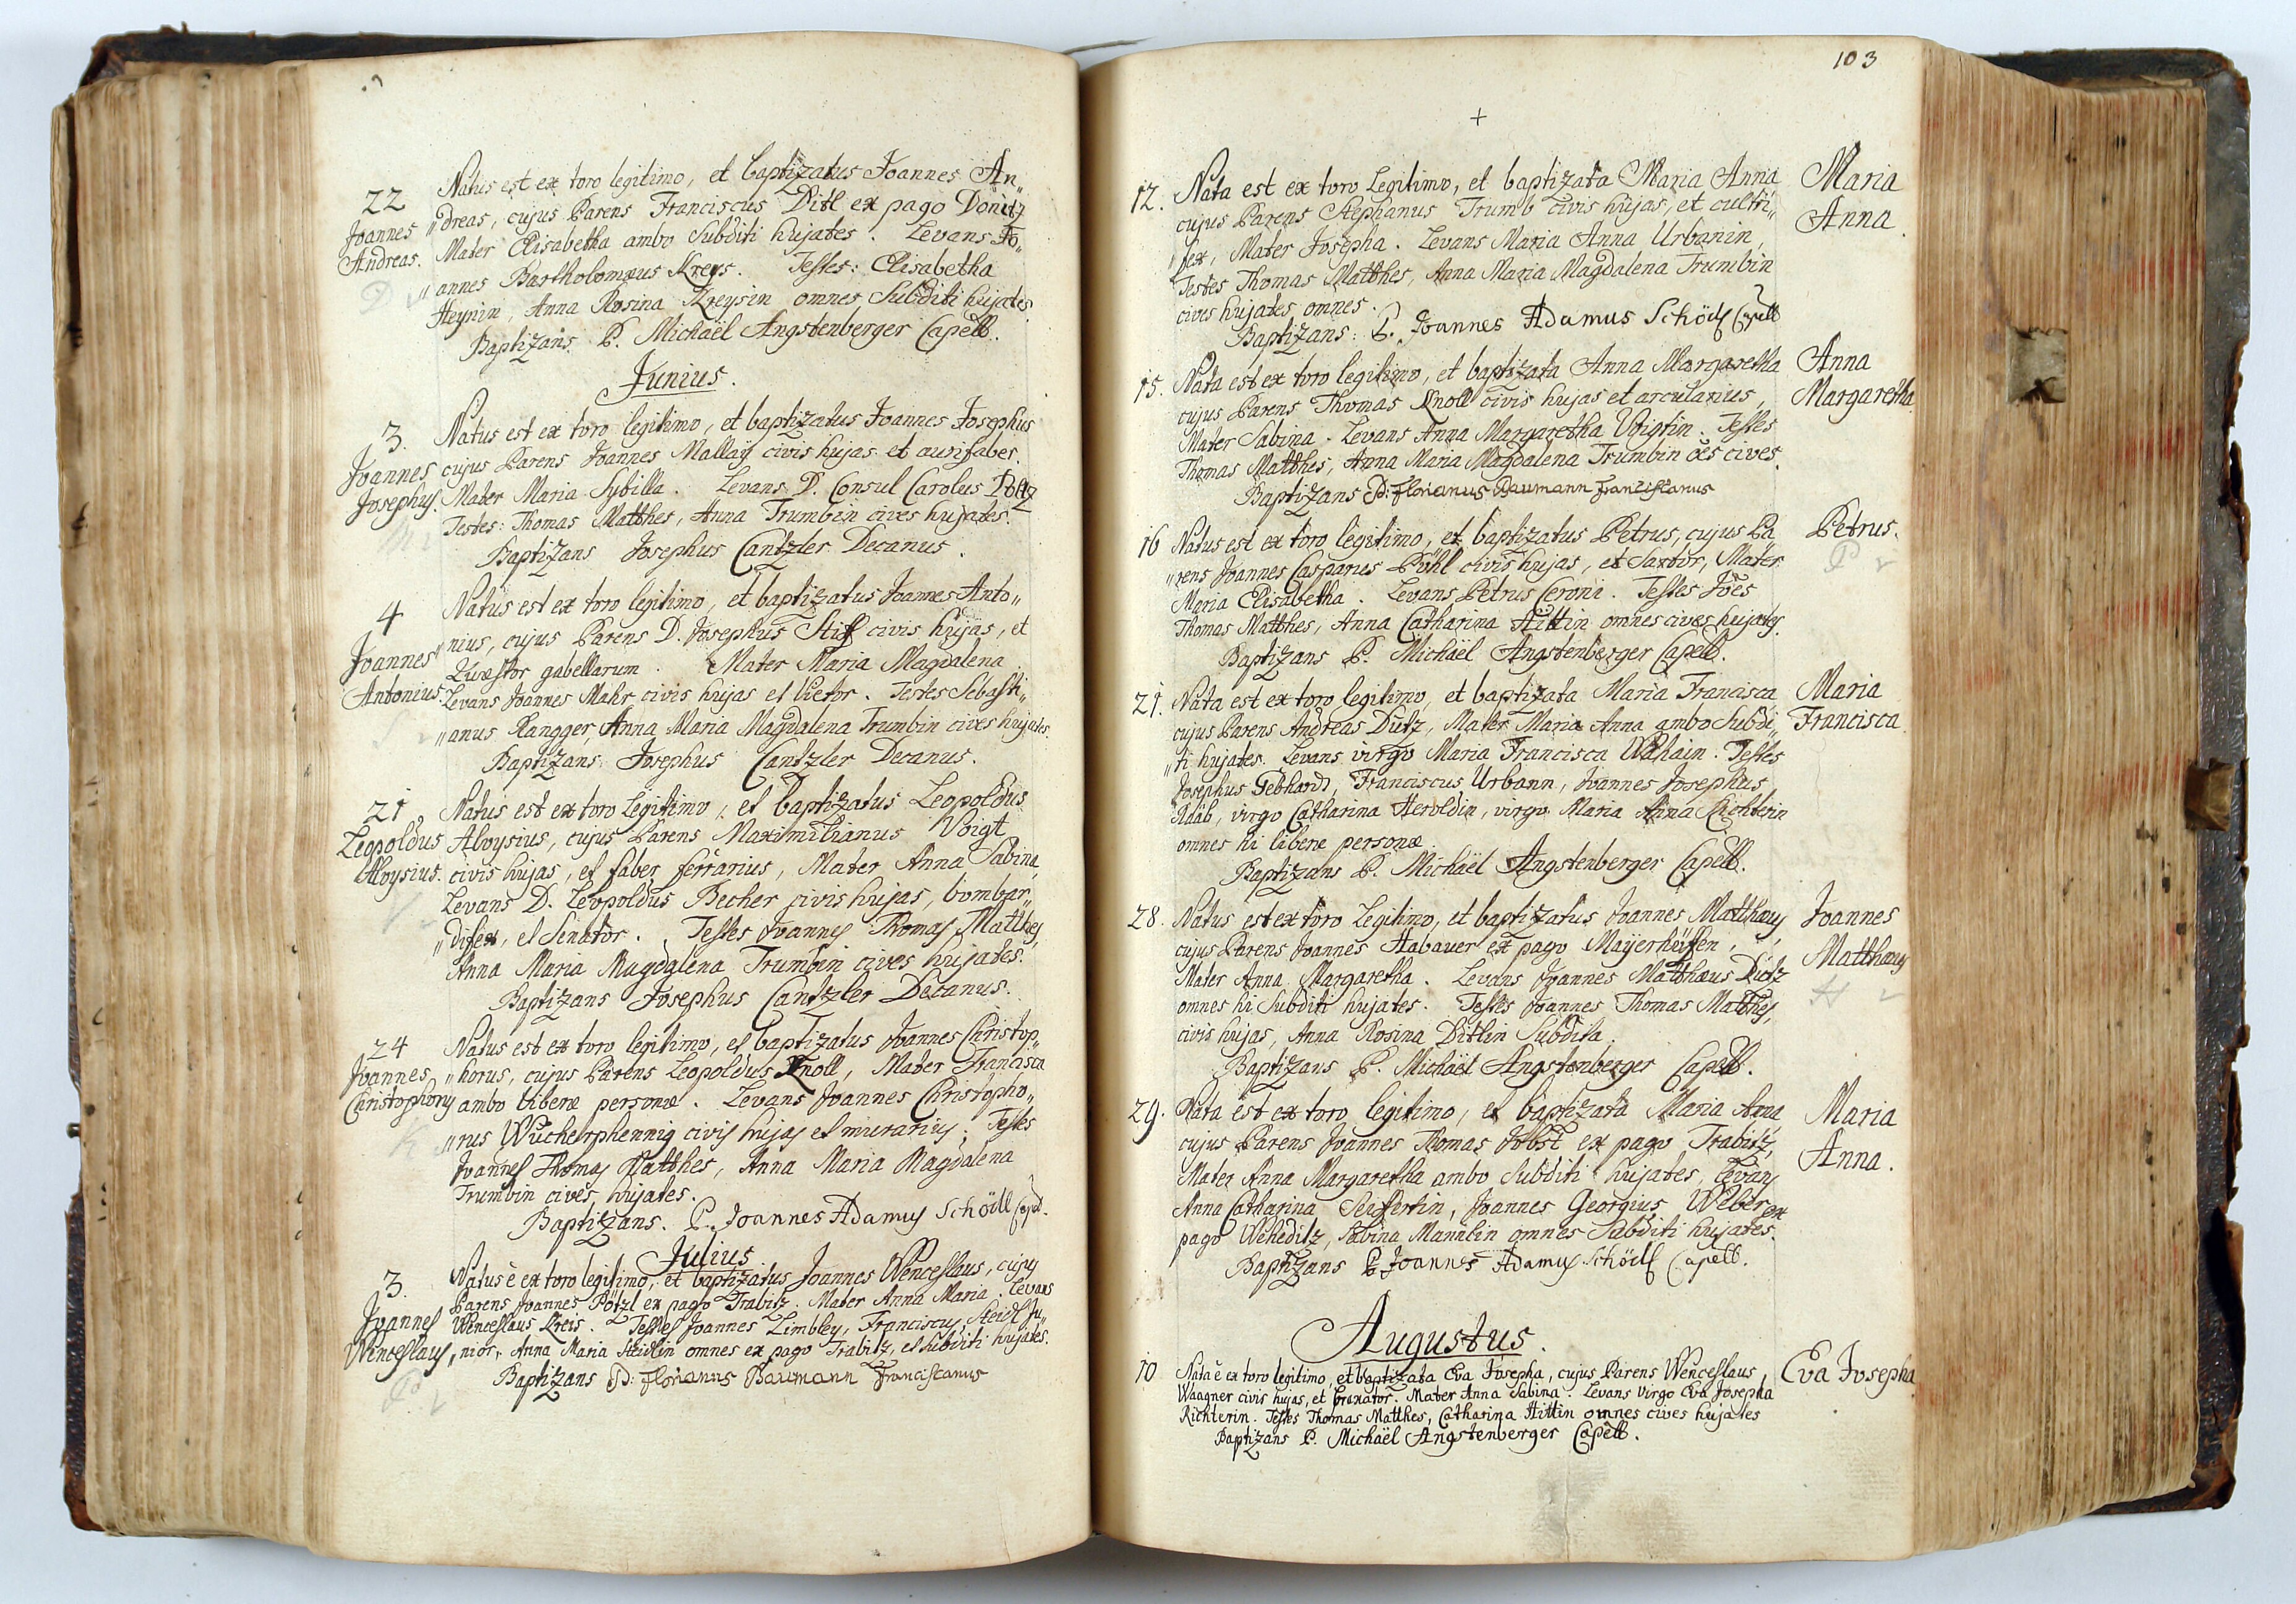 22
Joannes
Andreas.
Natus est ex toro legitimo, et baptizatus Joannes An„
„dreas, cujus Parens Franciscus Ditl ex pago Donitz
Mater Elisabetha ambo Subditi hujates. Levans Jo„
„annes Bartholomæus Kreys. Testes: Elisabetha
Heynin, Anna Rosina Kreysin omnes Subditi hujates.
Baptizans P. Michaël Angstenberger Capell.
Junius.
3.
Joannes
Josephus.
Natus est ex toro legitimo, et baptizatus Joannes Josephus
cujus Parens Joannes Mallaÿ civis hujas et aurifaber.
Mater Maria Sybilla. Levans D. Consul Carolus
Testes: Thomas Matthes, Anna Trumbin cives hujates.
Baptizans Josephus Cantzler Decanus.
4
Joannes
Antonius.
Natus est ex toro legitimo, et baptizatus Joannes Anto„
„nius, cujus Parens D. Josephus Stiff civis hujas, et
Quæstor gabellarum. Mater Maria Magdalena.
Levans Joannes Mahr civis hujas et Vietor. Testes Sebasti„
„anus Rangger, Anna Maria Magdalena Trumbin cives hujates.
Baptizans Josephus Cantzler Decanus.
21.
Leopoldus
Aloysius.
Natus est ex toro Legitimo, et baptizatus Leopoldus
Aloysius, cujus Parens Maximilianus Voigt
civis hujas, et faber ferrarius, Mater Anna Sabina,
Levans D. Leopoldus Becher civis hujas, bombar„
„difex, et Senator. Testes Joannes Thomas Matthes,
Anna Maria Magdalena Trumbin cives hujates.
Baptizans Josephus Cantzler Decanus.
24
Joannes
Christophorus
Natus est ex toro legitimo, et baptizatus Joannes Christop„
„horus, cujus Parens Leopoldus Knoll, Mater Francisca
ambo liberæ personæ. Levans Joannes Christopho„
„rus Wucherphennig civis hujas et murarius; Testes
Joannes Thomas Matthes, Anna Maria Magdalena
Trumbin cives hujates.
Baptizans. P. Joannes Adamus Schödl Capel.
Julius
3.
Joannes
Wenceslaus
Natus ē ex toro legitimo, et baptizatus Joannes Wenceslaus, cujus
Parens Joannes Pötzl ex pago Trabitz. Mater Anna Maria. Levans
Wenceslaus Kreis. Testes Joannes Limbley, Franciscus Steidl Ju„
„nior, Anna Maria Steidlin omnes ex pago Trabitz, et Subditi hujates.
Baptizans P: Florianus Baumann Franciscanus
103
+
12. Nata est ex toro Legitimo, et baptizata Maria Anna
cujus Parens Stephanus Trumb civis hujas, et cultri„
„fex, Mater Josepha. Levans Maria Anna Urbanin,
Testes Thomas Matthes, Anna Maria Magdalena Trumbin
cives hujates omnes.
Baptizans: P. Joannes Adamus Schödl Capell
Maria
Anna.
15. Nata est ex toro legitimo, et baptizata Anna Margaretha
cujus Parens Thomas Knoll civis hujas et arcularius,
Mater Sabina. Levans Anna Margaretha Voigtin. Testes
Thomas Matthes, Anna Maria Magdalena Trumbin oēs cives.
Baptizans P: Florianus Baumann Franciscanus
Anna
Margaretha.
16 Natus est ex toro legitimo, et baptizatus Petrus, cujus Pa„
„rens Joannes Casparus Pöhl civis hujas, et Sartor, Mater
Maria Elisabetha. Levans Petrus Ceroni. Testes Joēs
Thomas Matthes, Anna Catharina Hittin omnes cives hujates.
Baptizans P. Michaël Angstenberger Capell.
Petrus.
21. Nata est ex toro legitimo, et baptizata Maria Francisca
cujus Parens Andreas Dutz, Mater Maria Anna ambo Subdi„
„ti hujates. Levans virgo Maria Francisca Testes
Josephus Gebhard, Franciscus Urbann, Joannes Josephus
Raab, virgo Catharina Heroldin, virgo Maria Anna
omnes hi liberæ personæ.
Baptizans P. Michaël Angstenberger Capell.
Maria
Francisca.
28. Natus est ex toro Legitimo, et baptizatus Joannes Matthæus
cujus Parens Joannes Habauer ex pago Maÿerhöffen,
Mater Anna Margaretha. Levans Joannes Matthæus Dutz
omnes hi Subditi hujates. Testes Joannes Thomas Matthes,
civis hujas, Anna Rosina Ditlin Subdita.
Baptizans P. Michaël Angstenberger Capell.
Joannes
Matthæus
29. Nata est ex toro legitimo, et baptizata Maria Anna,
cujus Parens Joannes Thomas Jobst ex pago Trabitz,
Mater Anna Margaretha ambo Subditi hujates, Levans
Anna Catharina Seiffertin, Joannes Georgius Weber ex
pago Weheditz, Sabina Mannlin omnes Subditi hujates.
Baptizans P. Joannes Adamus Schödl Capell.
Maria
Anna.
Augustus.
10 Nata ē ex toro legitimo, et baptizata Eva Josepha, cujus Parens Wenceslaus
Waagner civis hujas, et braxator. Mater Anna Sabina. Levans Virgo Eva Josepha
Richterin. Testes Thomas Matthes, Catharina Hittin omnes cives hujates
Baptizans P. Michaël Angstenberger Capell.
Eva Josepha.